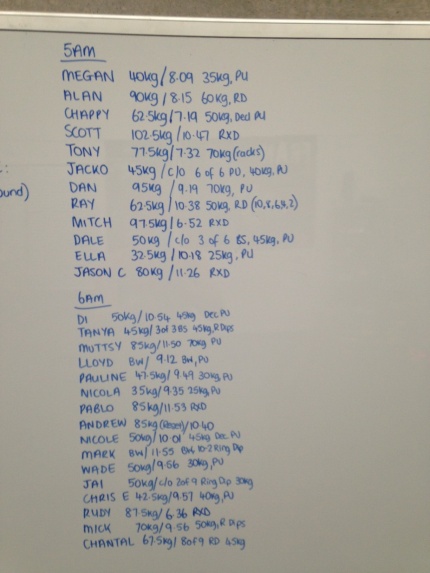 5AM
MEGAN 40kg/8.09 35kg, PU
ALAN 90kg/8.15 60kg, RD
CHAPPY 62.5kg/7.19 50kg, Decl PU
SCOTT 102.5kg/10.47 RXD
TONY 77.5kg/7.32 70kg (racks)
JACKO 45kg/c/o 6 of 6 PU, 40kg, PU
DAN 95kg/9.19 70kg, PU
ound)
RAY 62.5kg/10.38 50kg, RD (10,8,6,4,2)
MITCH 97.5kg/6.52 RXD
DALE 50kg/c/o 3 of 6 BS, 45kg, PU
ELLA 32.5kg/10.18 25kg, PU
JASON C 80kg/11.26 RXD
6AM
DI 50kg/10.54 45kg Dec PU
TANYA 45kg/3of 3BS 45kg, R Dips
MUTTSY 85kg/11.50 70kg PU
LLOYD BW/ 9.12 BW, PU
PAULINE 47.5kg/9.49 30kg, PU
NICOLA 35kg/9.35 25kg, PU
PABLO 85kg/11.53 RXD
ANDREW 85kg /10.40
NICOLE 50kg/10.01 45kg Dec PU
MARK BW/11.55 10-2 Ring Dip
WADE 50kg/9.56 30kg, PU
JAI 50kg/c/o 2of 9 Ring Dip 30kg
CHRIS E 42.5kg/9.57 40kg, PU
RUDY 87.5kg/6.36 RXD
MICK 70kg/9.56 50kg, R Dips
CHANTAL 67.5kg/8of9 RD 45kg